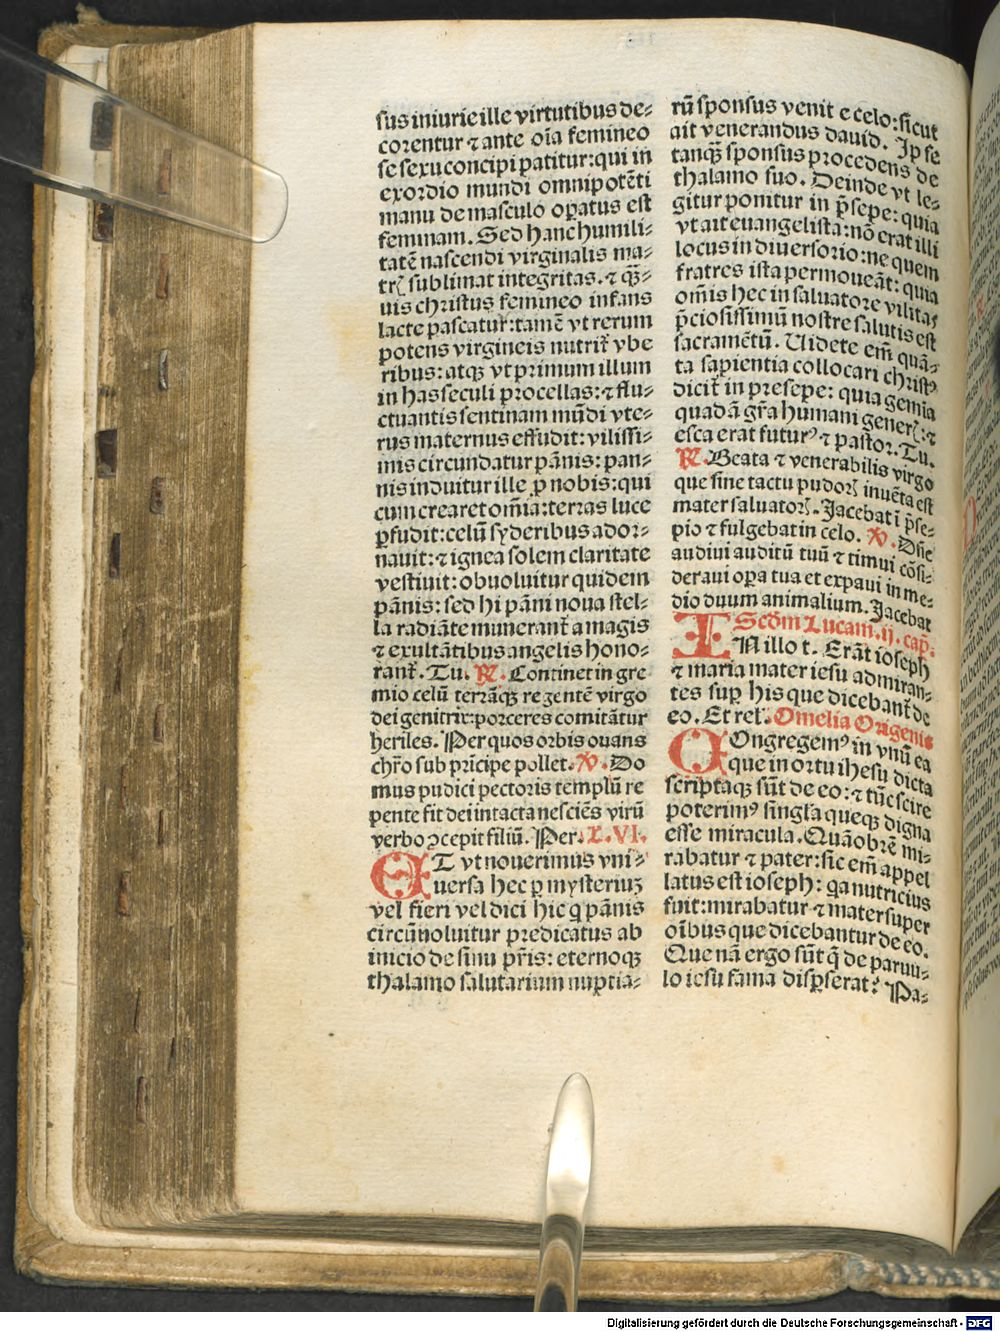 sus iniurie ille virtutibus de⸗
corentur ⁊ ante oĩa femineo
se sexu concipi patitur: qui in
exordio mundi omnipotẽti
manu de masculo oꝑatus est
feminam. Sed hanc humili⸗
tatẽ nascendi virginalis ma⸗
trꝭ sublimat integritas. ⁊ qꝫ̃⸗
uis christus femineo infans
lacte pascatur: tamẽ vt rerum
potens virgineis nutrit᷑ vbe
ribus: atqꝫ vt primum illum
in has seculi procellas: ⁊ flu⸗
ctuantis sentinam mũdi vte⸗
rus maternus effudit: vilissi⸗
mis circundatur pãnis: pan⸗
nis induitur ille ꝓ nobis: qui
cum crearet om̃ia: terras luce
ꝑfudit: celũ syderibus ador⸗
nauit: ⁊ ignea solem claritate
vestiuit: obuoluitur quidem
pãnis: sed hi pãni noua stel⸗
la radiãte munerant᷑ a magis
⁊ exultãtibus angelis hono⸗
rant᷑. Tu. ℟. Continet in gre
mio celũ terrãqꝫ regentẽ virgo
dei genitrix: porceres comitãtur
heriles. Per quos orbis ouans
chr̃o sub prĩcipe pollet. ℣. Do
mus pudici pectoris templũ re
pente fit dei intacta nesciẽs virũ
verbo ꝯcepit filiũ. Per. L. VI.
ET vt nouerimus vni⸗
uersa hec ꝓ mysteriuꝫ
vel fieri vel dici hic q̇ pãnis
circũuoluitur predicatus ab
inicio de sinu pr̃is: eternoqꝫ
thalamo salutarium nuptia⸗
rũ sponsus venit e celo: sicut
ait venerandus dauid. Ipse
tanqꝫ̃ sponsus procedens de
thalamo suo. Deinde vt le⸗
gitur ponitur in p̃sepe: quia
vt ait euangelista: nõ erat illi
locus in diuersorio: ne quem
fratres ista permoueãt: quia
om̃is hec in saluatore vilitas
p̃ciosissimũ nostre salutis est
sacramẽtũ. Uidete em̃ quã⸗
ta sapientia collocari christꝰ
dicit᷑ in presepe: quia gemia
quadã gr̃a humani generꝭ: ⁊
esca erat futurꝰ ⁊ pastor. Tu.
℟. Beata ⁊ venerabilis virgo
que sine tactu pudorꝭ inuẽta est
mater saluatorꝭ. Jacebat ĩ p̃se⸗
pio ⁊ fulgebat in celo. ℣. Dñe
audiui auditũ tuũ ⁊ timui cõsi⸗
deraui oꝑa tua et expaui in me⸗
dio duum animalium. Jacebat
Scd̃m Lucam. ij. cap̃.
IN illo t. Erãt ioseph
⁊ maria mater iesu admiran⸗
tes suꝑ his que dicebant᷑ de
eo. Et rel᷑. Omelia Origenis
COngregemꝰ in vnũ ea
que in ortu ihesu dicta
scriptaqꝫ sũt de eo: ⁊ tũc scire
poterimꝰ singl̃a queqꝫ digna
esse miracula. Quãobrẽ mi⸗
rabatur ⁊ pater: sic em̃ appel
latus est ioseph: qa nutricius
fuit: mirabatur ⁊ mater super
oĩbus que dicebantur de eo.
Que nã ergo sũt q̃ de paruu⸗
lo iesu fama disꝑserat? Pa⸗
Digitalisierung gefördert durch die Deutsche Forschungsgemeinschaft - DFG